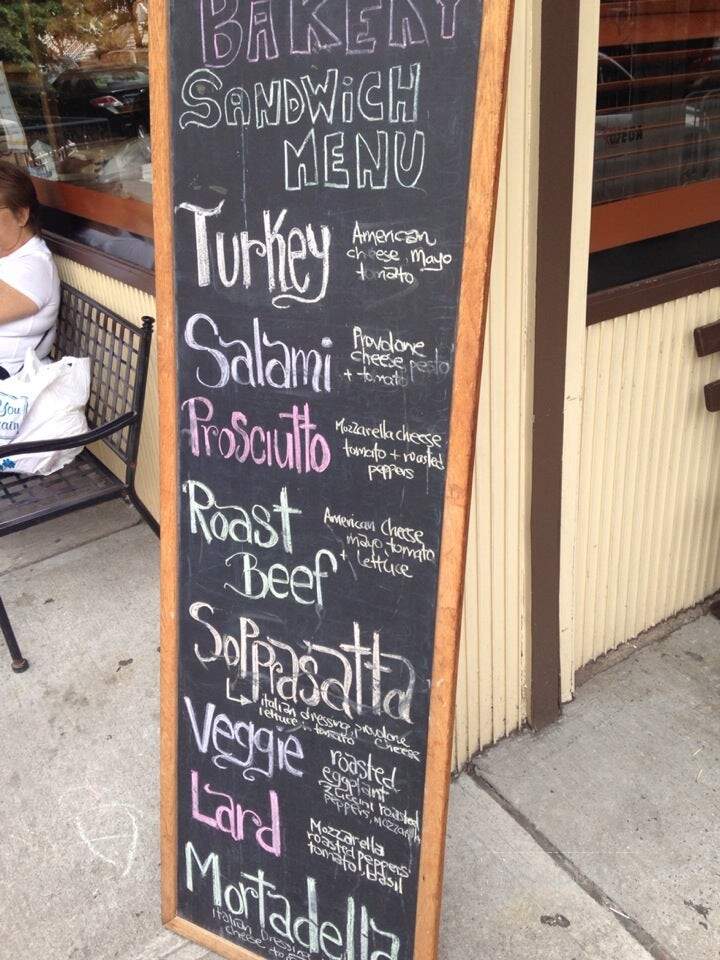 BAKERY
SANDWiCH
MENU
Turkey
American
cheese, mayo
tomato
Salami
Provolone
cheese, pesto
+ tomato
Prosciutto
Mozzarella cheese
tomato + roasted
peppers
Roast
Beef
American Cheese
mayo, tomato
+ lettuce
Soppraসatta
italian dressing, provolone
lettuce + tomato cheese
Veggie
roasted
eggplant
zuccini roasted
peppers, mozzarella
Lard
Mozzarella
roasted peppers
tomato, basil
Mortadella
italian Dressing
cheese
You